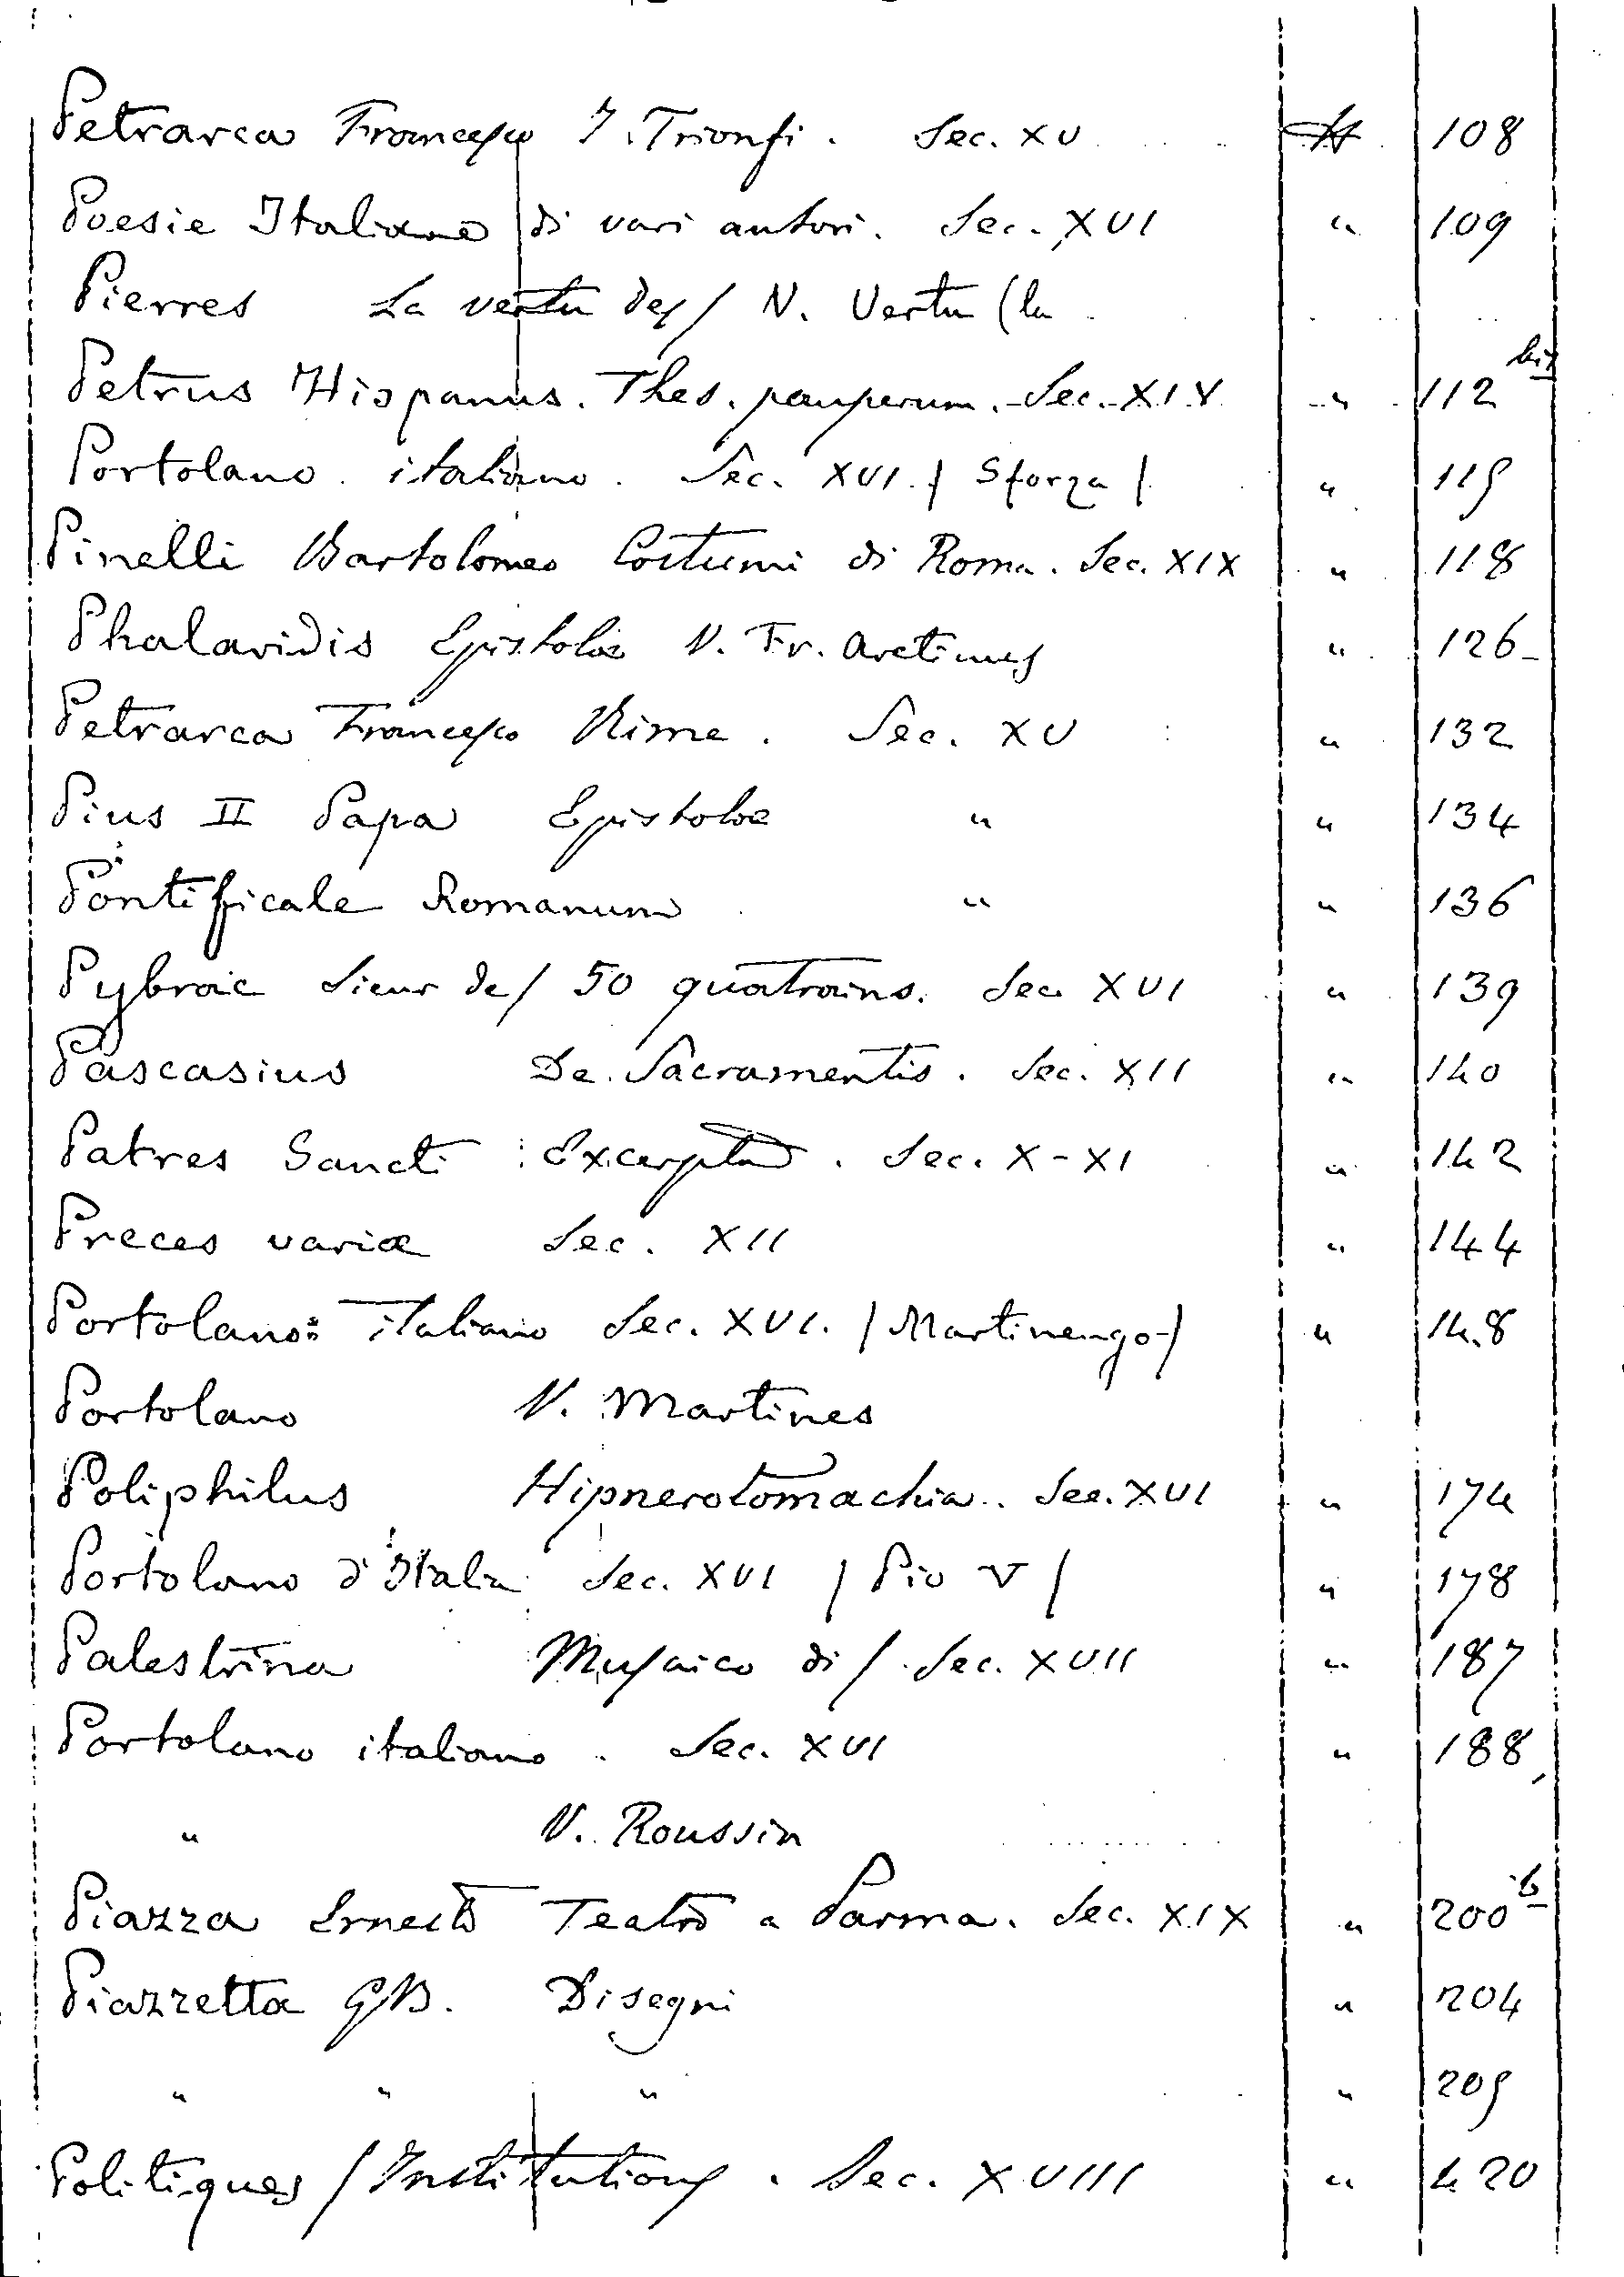 Petrarca Francesco I. Trionfi. Sec. XV 108
Poesie Italiane di vari autori. Sec. XVI " 109
Pierres La vertu des / V. Vertu (la
Petrus Hispanus. Thes. pauperum. Sec. XIV " 112 bis
Portolano italiano. Sec. XVI. / Sforza / " 115
Pinelli Bartolomeo Costumi di Roma. Sec. XIX " 118
Phalaridis Epistolae V. Fr. Aretinus " 126
Petrarca Francesco Rime. Sec. XV " 132
Pius II Papa Epistolae " " 134
Pontificale Romanum " " 136
Pybrac Sieur de / 50 quatrains. Sec XVI " 139
Pascasius De Sacramentis. Sec. XII " 140
Patres Sancti Excerpta. Sec. X-XI " 142
Preces variae Sec. XII " 144
Portolano: italiano Sec. XVI. / Martinengo / " 148
Portolano V. Martines
Poliphilus Hipnerotomachia. Sec. XVI " 174
Portolano d'Italia Sec. XVI / Pio V / " 178
Palestrina Musaico di / Sec. XVII " 187
Portolano italiano. Sec. XVI " 188
" V. Roussin
Piazza Ernesto Teatro a Parma. Sec. XIX " 200 b
Piazzetta GB. Disegni " 204
" " " " 205
Politiques / Institutions. Sec. XVIII " 420